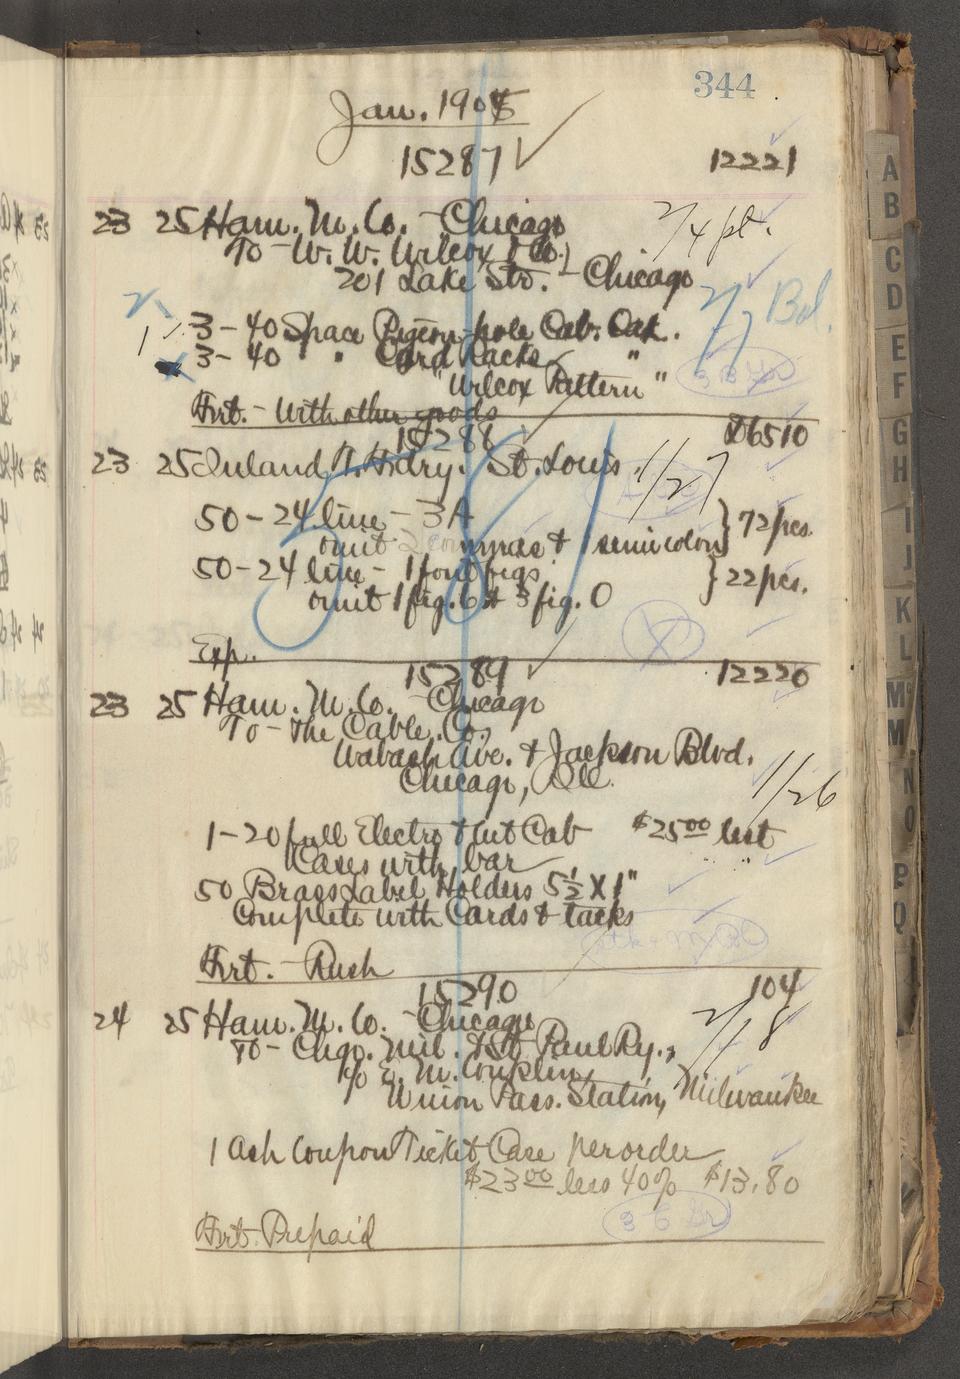 344
Jan. 1905
15287 12221
23 25 Ham. M. Co. - Chicago 2/4 pt.
To - W. W. Wilcox & Co.,
201 Lake Str. - Chicago
2/7 Bal.
3 - 40 Space Pigeon-hole Cab. Oak.
3 - 40 " Card Racks "
"Wilcox Pattern"
Frt. - With other goods
15288 D6510
23 25 Inland T. Fdry. St. Louis. 1/27
50 - 24 line - 3A } 72 pcs.
omit 2 commas & 1 semicolon
50 - 24 line - 1 font figs. } 22 pcs.
omit 1 fig. 6 & 3 fig. 0
Exp.
15289 12220
23 25 Ham. M. Co. - Chicago
To - The Cable Co.,
Wabash Ave. & Jackson Blvd.
Chicago, Ill. 1/26
1 - 20 full Electro & Cut Cab $25.00 list
Cases with bar " "
50 Brass Label Holders 5½ X 1"
Complete with Cards & tacks
Frt. - Rush
15290 104
24 25 Ham. M. Co. - Chicago 2/18
To - Chgo. Mil. & St. Paul Ry.,
c/o E. M. Conklin,
Union Pass. Station, Milwaukee
1 Ash Coupon Ticket Case per order
$23.00 less 40% $13.80
Frt. Prepaid
A
B
C
D
E
F
G
H
I
J
K
L
M
M
N
O
P
Q